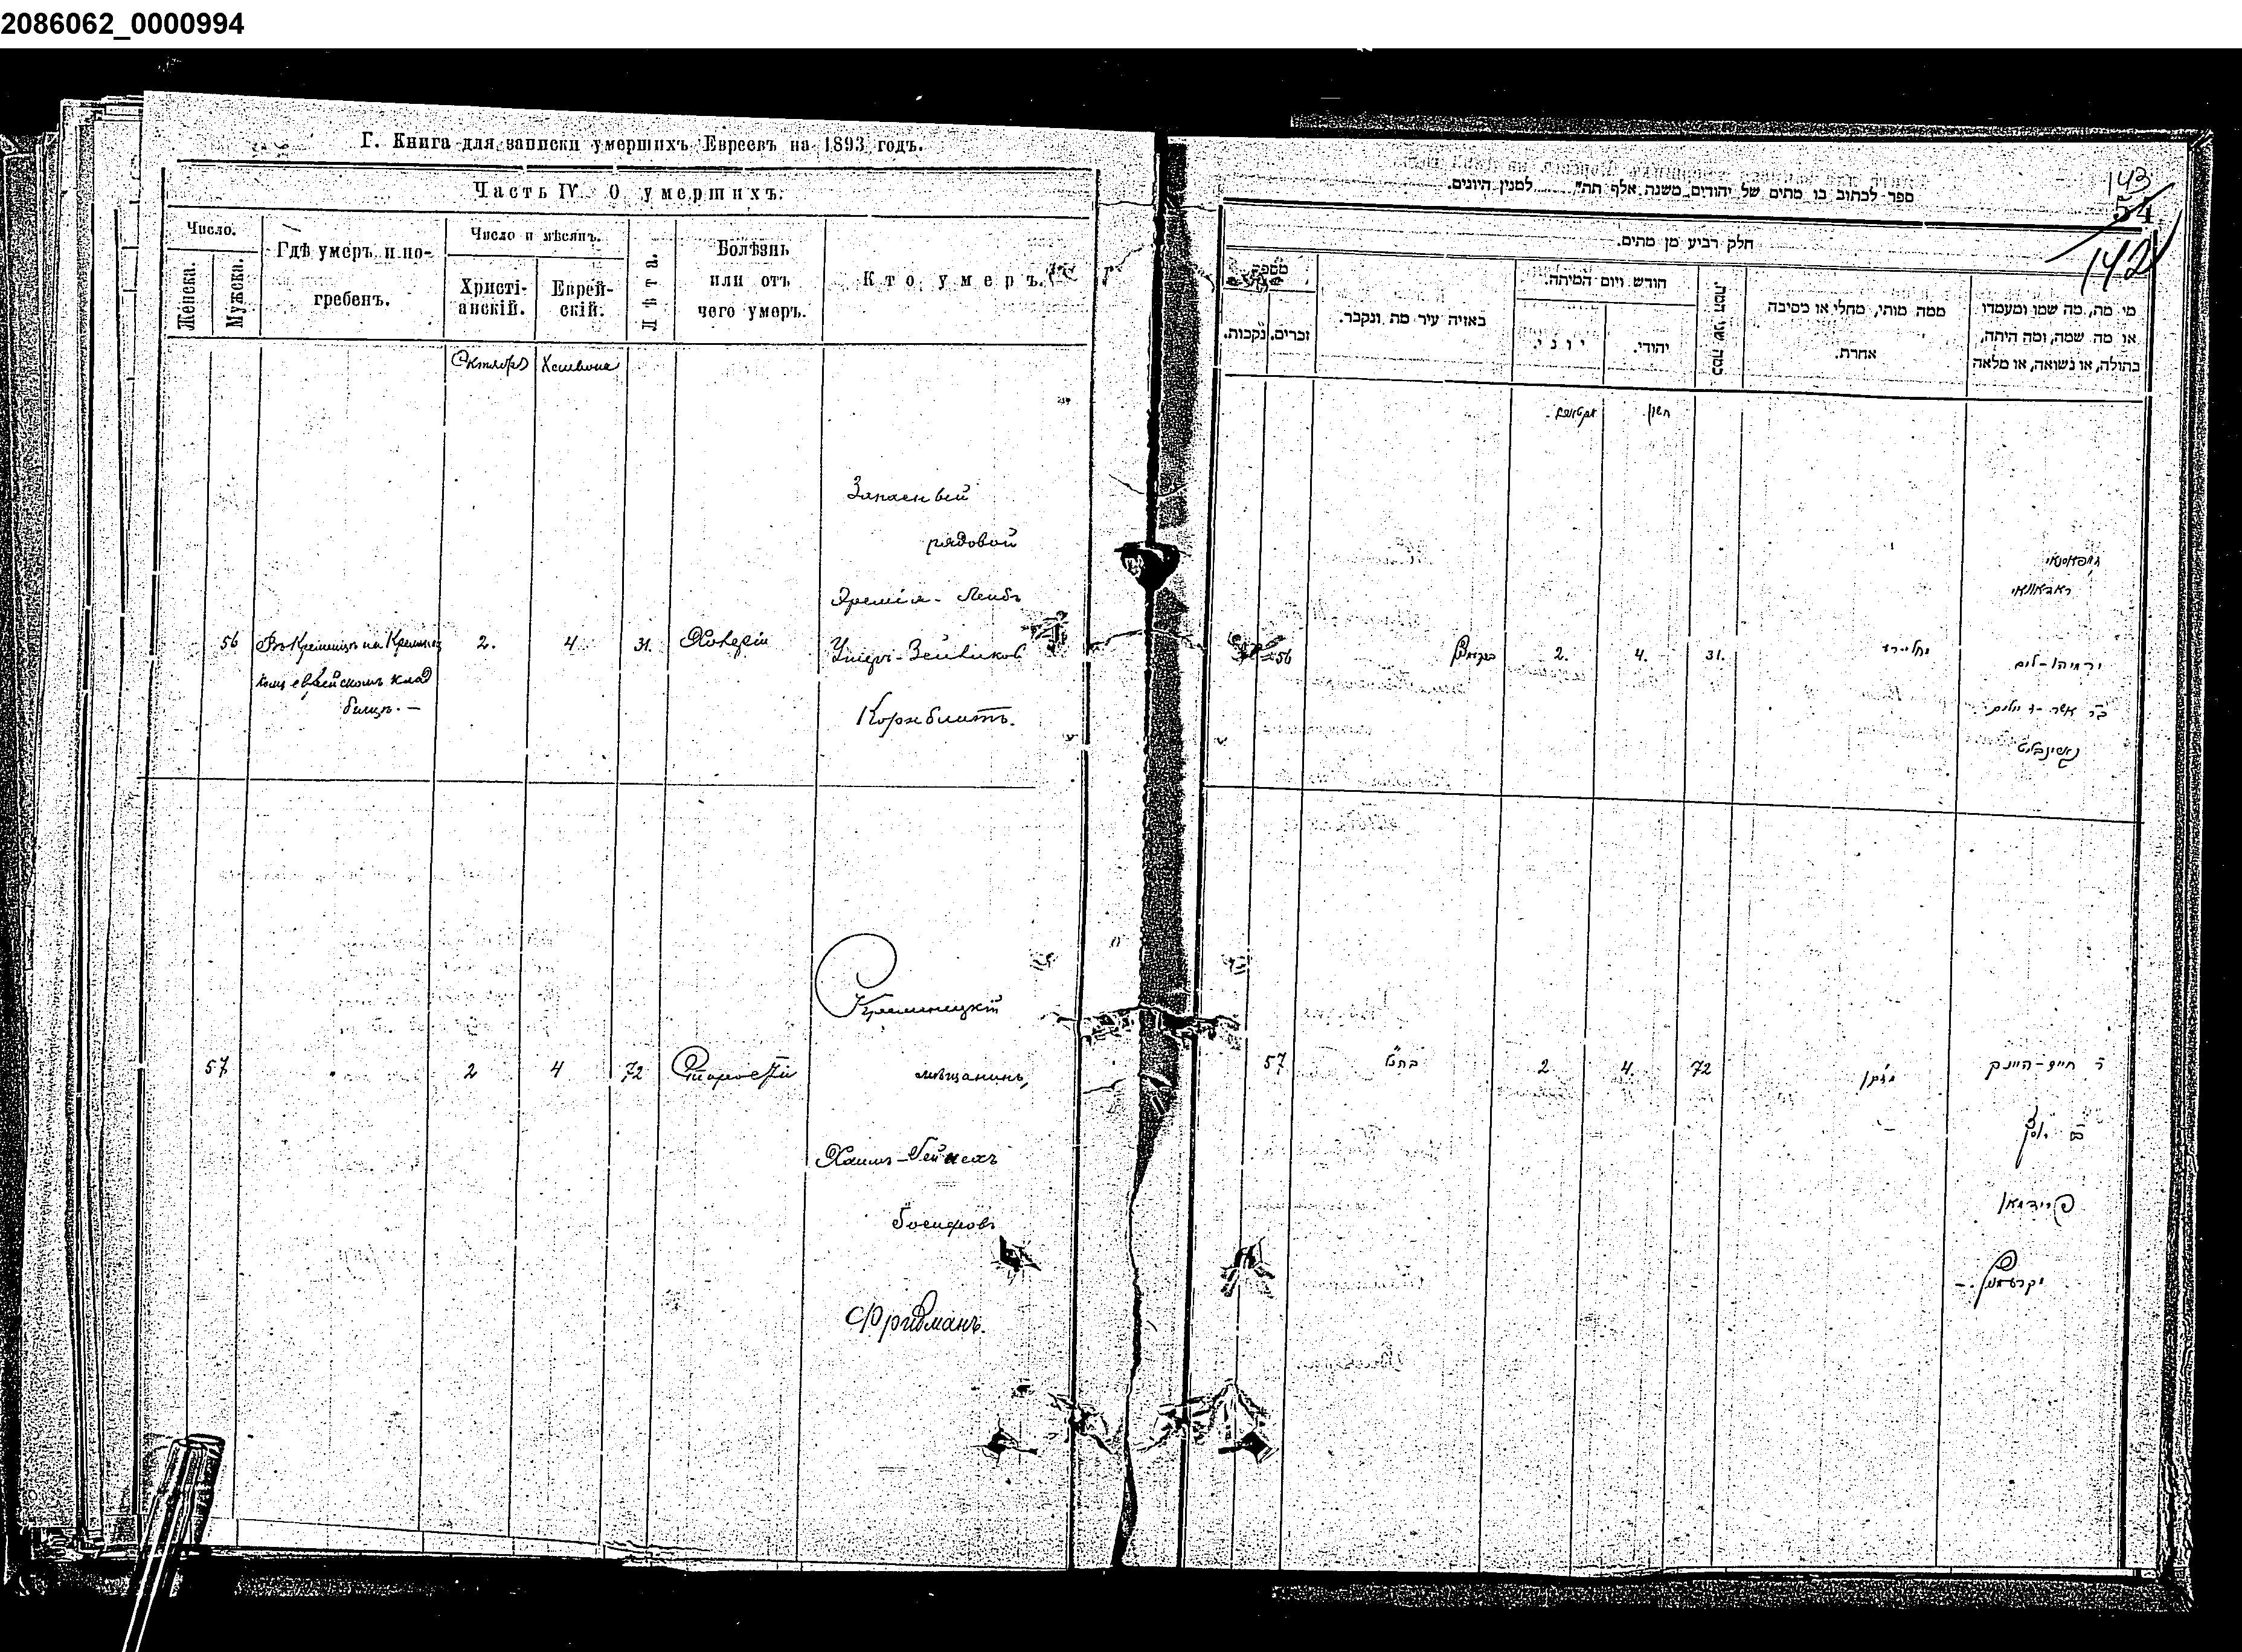 2086062_0000994
Г. Книга для записки умершихъ Евреевъ на 1893 годъ.
Часть IV. О умершихъ.
Число.
Женска.
Мужска.
Гдѣ умеръ и по-
гребенъ.
Число и мѣсяцъ.
Христі-
анскій.
Еврей-
скій.
Лѣта.
Болѣзнь
или отъ
чего умеръ.
Кто умеръ.
Октября
Хешвона
56
Въ Кременцѣ на Кременец
комъ еврейскомъ клад
бищѣ. —
2.
4
31.
Холери
Запасный
рядовой
Яремія - Лейбъ
Ушеръ-Зейликовъ
57
2
4
72
Старости
Кременецкій
мѣщанинъ,
Хаимъ-Гейнехъ
Іосифовъ
Фридманъ.
143
54
142
ספר לכתוב בו מתים של יהודים משנה אלף תת״ למנין היונים.
חלק רביע מן מתים.
מספר
זכרים.
נקבות.
באיזה עיר מת ונקבר.
חודש ויום המיתה.
יוני.
יהודי.
כמה שני המת.
ממה מותו, מחלי או מסיבה
אחרת.
מי מת, מה שמו ומעמדו
או מה שמה, ומה היתה,
בתולה, או נשואה, או מלאה
חשון
56
2.
4.
31.
ירמיהו-ליב
57
2
4.
72
ר׳ חיים-היינק
פרידמאן